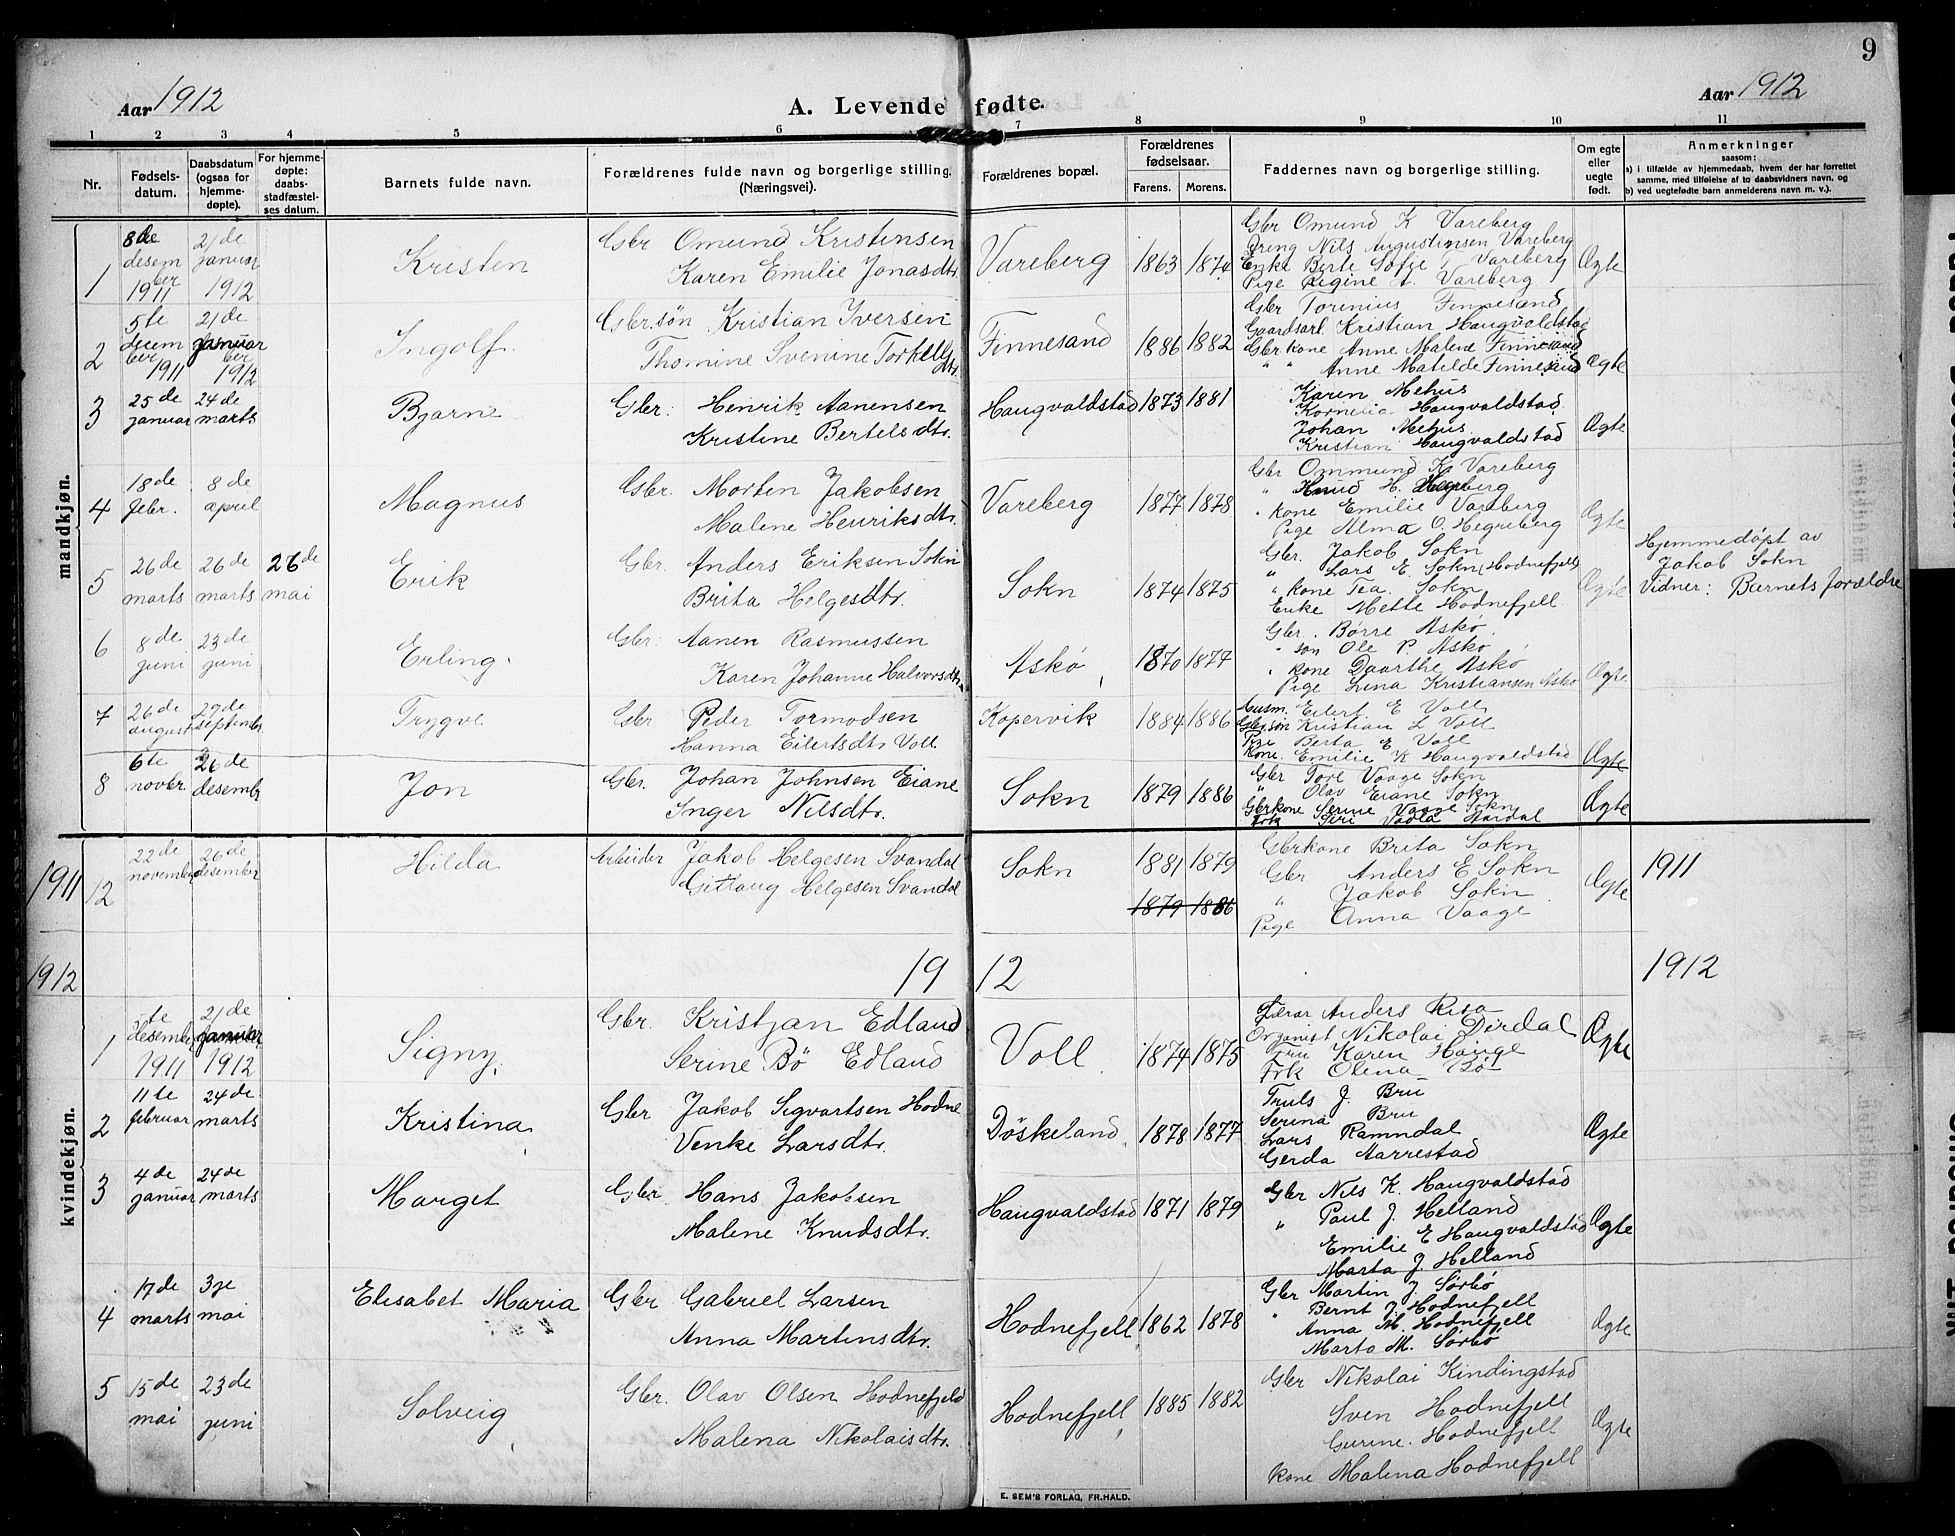 9
Aar 1912
A. Levende fødte.
Aar 1912
1 2 3 4 5 6 7 8 9 10 11
Nr.
Fødsels-
datum.
Daabsdatum
(ogsaa for
hjemme-
døpte).
For hjemme-
døpte:
daabs-
stadfæstel-
ses datum.
Barnets fulde navn.
Forældrenes fulde navn og borgerlige stilling.
(Næringsvei).
Forældrenes bopæl.
Forældrenes
fødselsaar.
Farens. Morens.
Faddernes navn og borgerlige stilling.
Om egte
eller
uegte
født.
Anmerkninger
saasom:
a) i tilfælde av hjemmedaab, hvem der har forrettet
samme, med tilføielse af to daabsvidners navn, og
b) ved uegtefødte barn anmelderens navn m. v.).
mandkjøn.
1
8de
desem
ber
1911
21de
januar
1912
Kristen
Gbr Omund Kristensen
Karen Emilie Jonasdtr
Vareberg
1863 1874
Gbr Omund K Vareberg
Dreng Nils Augustinsen Vareberg
Enke Berte Sofie Vareberg
Pige Regine A. Vareberg
Ægte
2
5te
decem
ber
1911
21de
januar
1912
Ingolf
Gbr.søn Kristian Iversen
Thomine Svenine Torkells
dtr.
Finnesand
1886 1882
Gbr Torenius Finnesand
Gaardsarb. Kristian Haugvaldstad
Gbrkone Anne Malene Finnesand
" " Anne Matilde Finnesand
Ægte
3
25de
januar
24de
marts
Bjarne
Gbr. Henrik Aanensen
Kristine Bertelsdtr.
Haugvaldstad
1873 1881
Karen Mehus
Kornelia Haugvaldstad
Johan Mehus
Kristian Haugvaldstad
Ægte
4
18de
febr.
8de
april
Magnus
Gbr. Morten Jakobsen
Malene Henriksdtr.
Vareberg
1877 1878
Gbr Ommund K. Vareberg
" Knud H.
" kone Emilie Vareberg
Pige Alma O. Hegreberg
Ægte
5
26de
marts
26de
marts
26de
mai
Erik
Gbr. Anders Eriksen Sokn
Brita Helgesdtr.
Sokn
1874 1875
Gbr. Jakob Sokn
" Lars E. Sokn (Hodnefjell)
" kone Tea. Sokn
Enke Mette Hodnefjell
Ægte
Hjemmedøpt av
Jakob Sokn
Vidner: Barnets forældre
6
8de
juni
23de
juni
Erling.
Gbr. Aanen Rasmussen
Karen Johanne Halvorsdtr.
Askø
1870 1877
Gbr. Børre Askø
" søn Ole P. Askø
" kone Daarthe Askø
Pige Lina Kristiansen Askø
Ægte
7
26de
august
29de
september
Trygve
Gbr Peder Tormodsen
Hanna Eilertsdtr Voll
Kopervik
1884 1886
Husm. Eilert E Voll
Gbrsøn Kristian L Voll
Pige Berta E Voll
Kone Emilie K Haugvaldstad
Ægte
8
6te
novbr.
26de
desembr
Jon
Gbr. Johan Johnsen Eiane
Inger Nilsdtr.
Sokn
1879 1886
Gbr Tore Vaage Sokn
" Olav Eiane Sokn
Gbrkone Serine Vaage Sokn
Frk Siri Vadla Aardal
Ægte
1911
12
22de
novembr
26de
desembr
Hilda
Arbeider Jakob Helgesen Svandal
Gitlaug Helgesen Svandal
Sokn
1881 1879
1879 1886
Gbrkone Brita Sokn
Gbr Anders E Sokn
" Jakob Sokn
Pige Anna Vaage
Ægte
1911
1912
1912
1912
kvindekjøn.
1
te
desembr
1911
21de
januar
1912
Signy.
Gbr. Kristjan Edland
Serine Bö Edland
Voll
1874 1875
Lærar Anders Reta
Organist Nikolai Dirdal
Fru Karen Hauge
Frk Olena Bø
Ægte
2
11te
februar
24de
marts
Kristina
Gbr Jakob Sigvartsen Hodne
Venke Larsdtr.
Døskeland
1878 1877
Truls J. Bru
Serina Bru
Lars Ramndal
Gerda Aarrestad
Ægte
3
4de
januar
24de
marts
Marget
Gbr Hans Jakobsen
Malene Knudsdtr.
Haugvaldstad
1871 1879
Gbr Nils K. Haugvaldstad
" Paul J. Helland
Emilie E Haugvaldstad
Marta J. Helland
Ægte
4
17de
marts
3je
mai
Elisabet Maria
Gbr Gabriel Larsen
Anna Martinsdtr.
Hodnefjell
1862 1878
Gbr Martin J. Sørbø
" Bernt J. Hodnefjell
Anna M. Hodnefjell
Marta M. Sørbø
Ægte
5
15de
mai
23de
juni
Solveig
Gbr. Olav Olsen Hodnefjeld
Malena Nikolaisdtr.
Hodnefjell
1885 1882
Gbr Nikolai Kindingstad
Sven Hodnefjell
Gurine. Hodnefjell
Kone Malena Hodnefjell
Ægte
E. SEM'S FORLAG, FR.HALD.